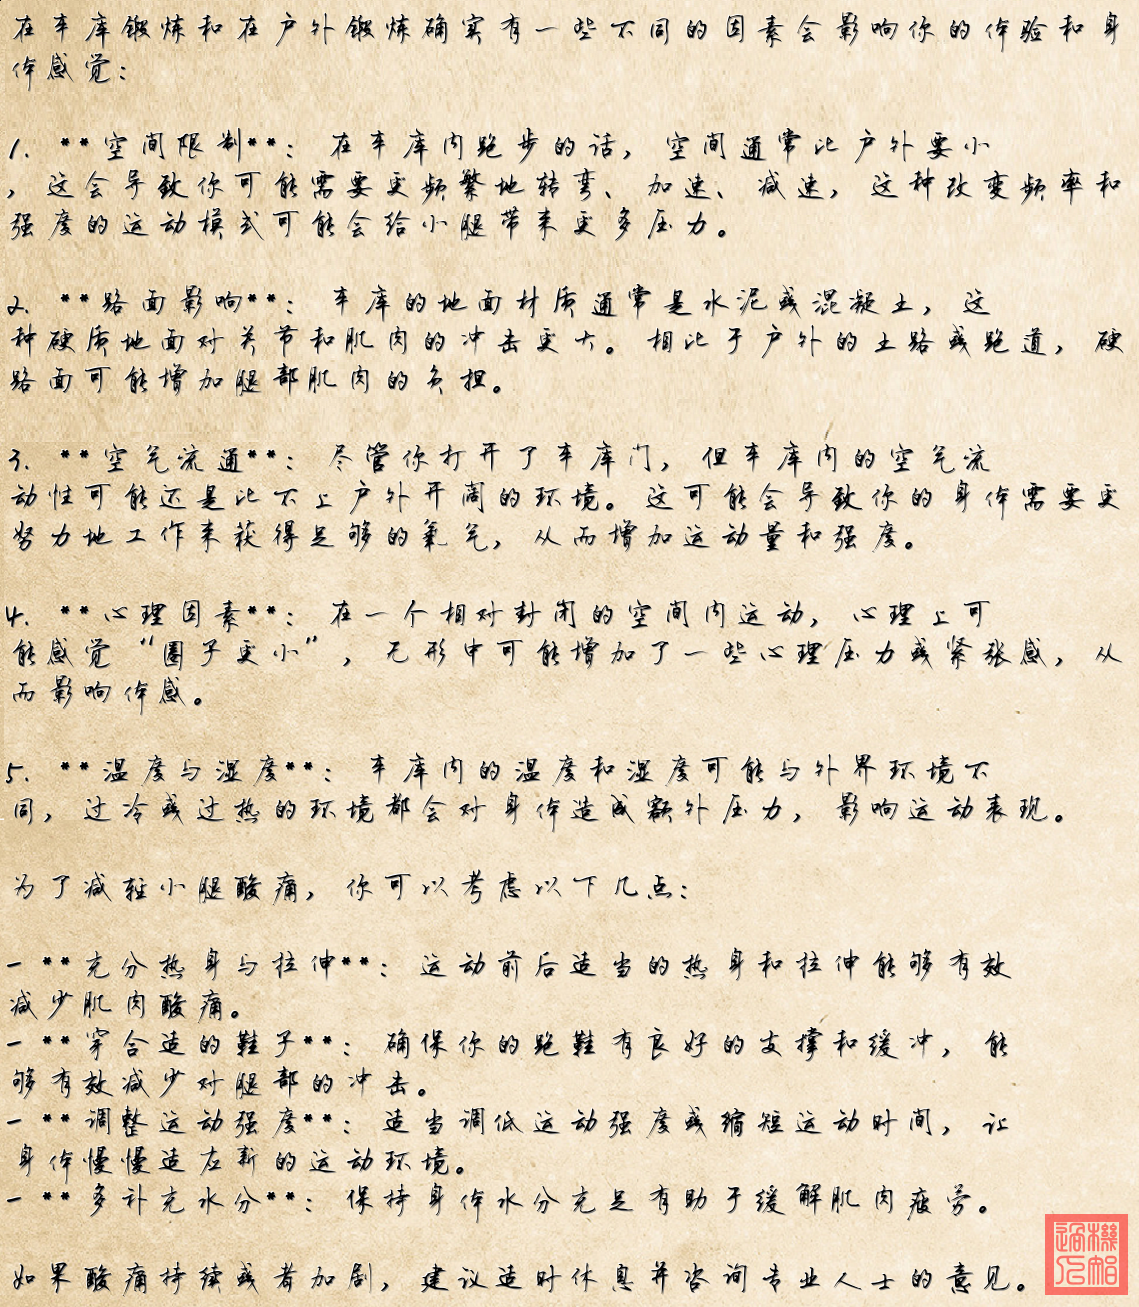 在车库锻炼和在户外锻炼确实有一些不同的因素会影响你的体验和身
体感觉：
1. **空间限制**：在车库内跑步的话，空间通常比户外要小
，这会导致你可能需要更频繁地转弯、加速、减速，这种改变频率和
强度的运动模式可能会给小腿带来更多压力。
2. **路面影响**：车库的地面材质通常是水泥或混凝土，这
种硬质地面对关节和肌肉的冲击更大。相比于户外的土路或跑道，硬
路面可能增加腿部肌肉的负担。
3. **空气流通**：尽管你打开了车库门，但车库内的空气流
动性可能还是比不上户外开阔的环境。这可能会导致你的身体需要更
努力地工作来获得足够的氧气，从而增加运动量和强度。
4. **心理因素**：在一个相对封闭的空间内运动，心理上可
能感觉“圈子更小”，无形中可能增加了一些心理压力或紧张感，从
而影响体感。
5. **温度与湿度**：车库内的温度和湿度可能与外界环境不
同，过冷或过热的环境都会对身体造成额外压力，影响运动表现。
为了减轻小腿酸痛，你可以考虑以下几点：
- **充分热身与拉伸**：运动前后适当的热身和拉伸能够有效
减少肌肉酸痛。
- **穿合适的鞋子**：确保你的跑鞋有良好的支撑和缓冲，能
够有效减少对腿部的冲击。
- **调整运动强度**：适当调低运动强度或缩短运动时间，让
身体慢慢适应新的运动环境。
- **多补充水分**：保持身体水分充足有助于缓解肌肉疲劳。
如果酸痛持续或者加剧，建议适时休息并咨询专业人士的意见。